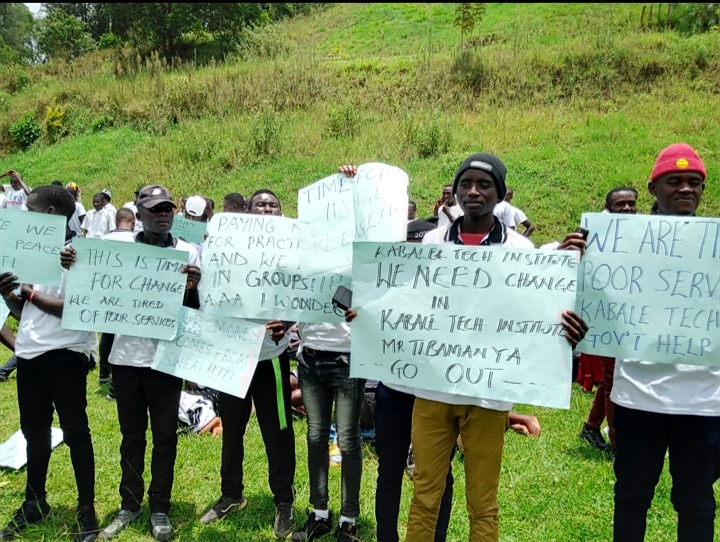 PEACE
THIS IS TIME
FOR CHANGE
WE ARE TIRED
OF POUR SERVICES
PAYING
FOR PRACTI
AND WE
IN GROUPS!!!!
AAA I WONDER
MONEY
COMES FROM
TIME FOR
KABALE TECH INSTITUTE
WE NEED CHANGE
IN
KABALE TECH INSTITUTE
MR TIBAMANYA
GO OUT
WE ARE TI
POOR SERV
KABALE TECH
GOV'T HELP